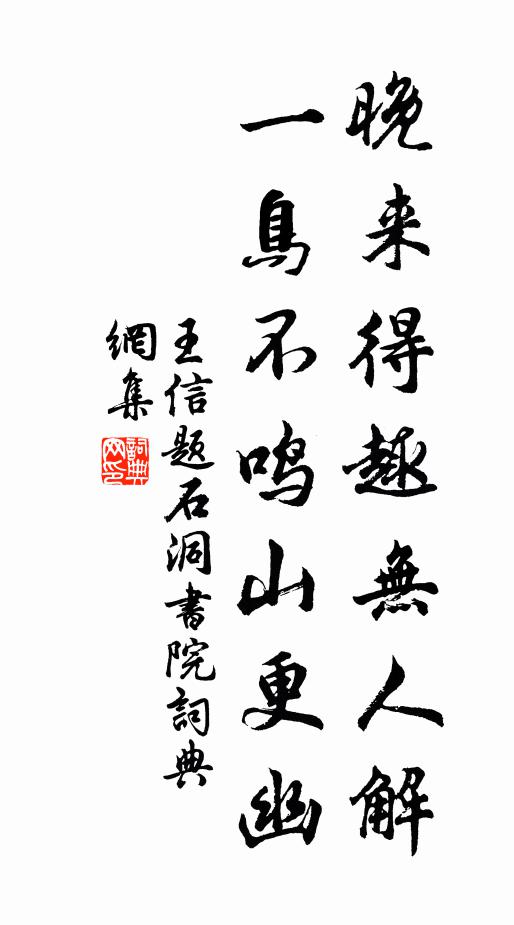 晚来得趣無人解
一鳥不鳴山更幽
王信題石洞書院詞典
網集
詞典
网印